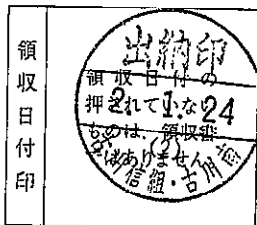 領収日付印
出納印
領収日付の
押されてないな
ものは、領収証
ではありません
2.1.24
(2)
信組・古川店